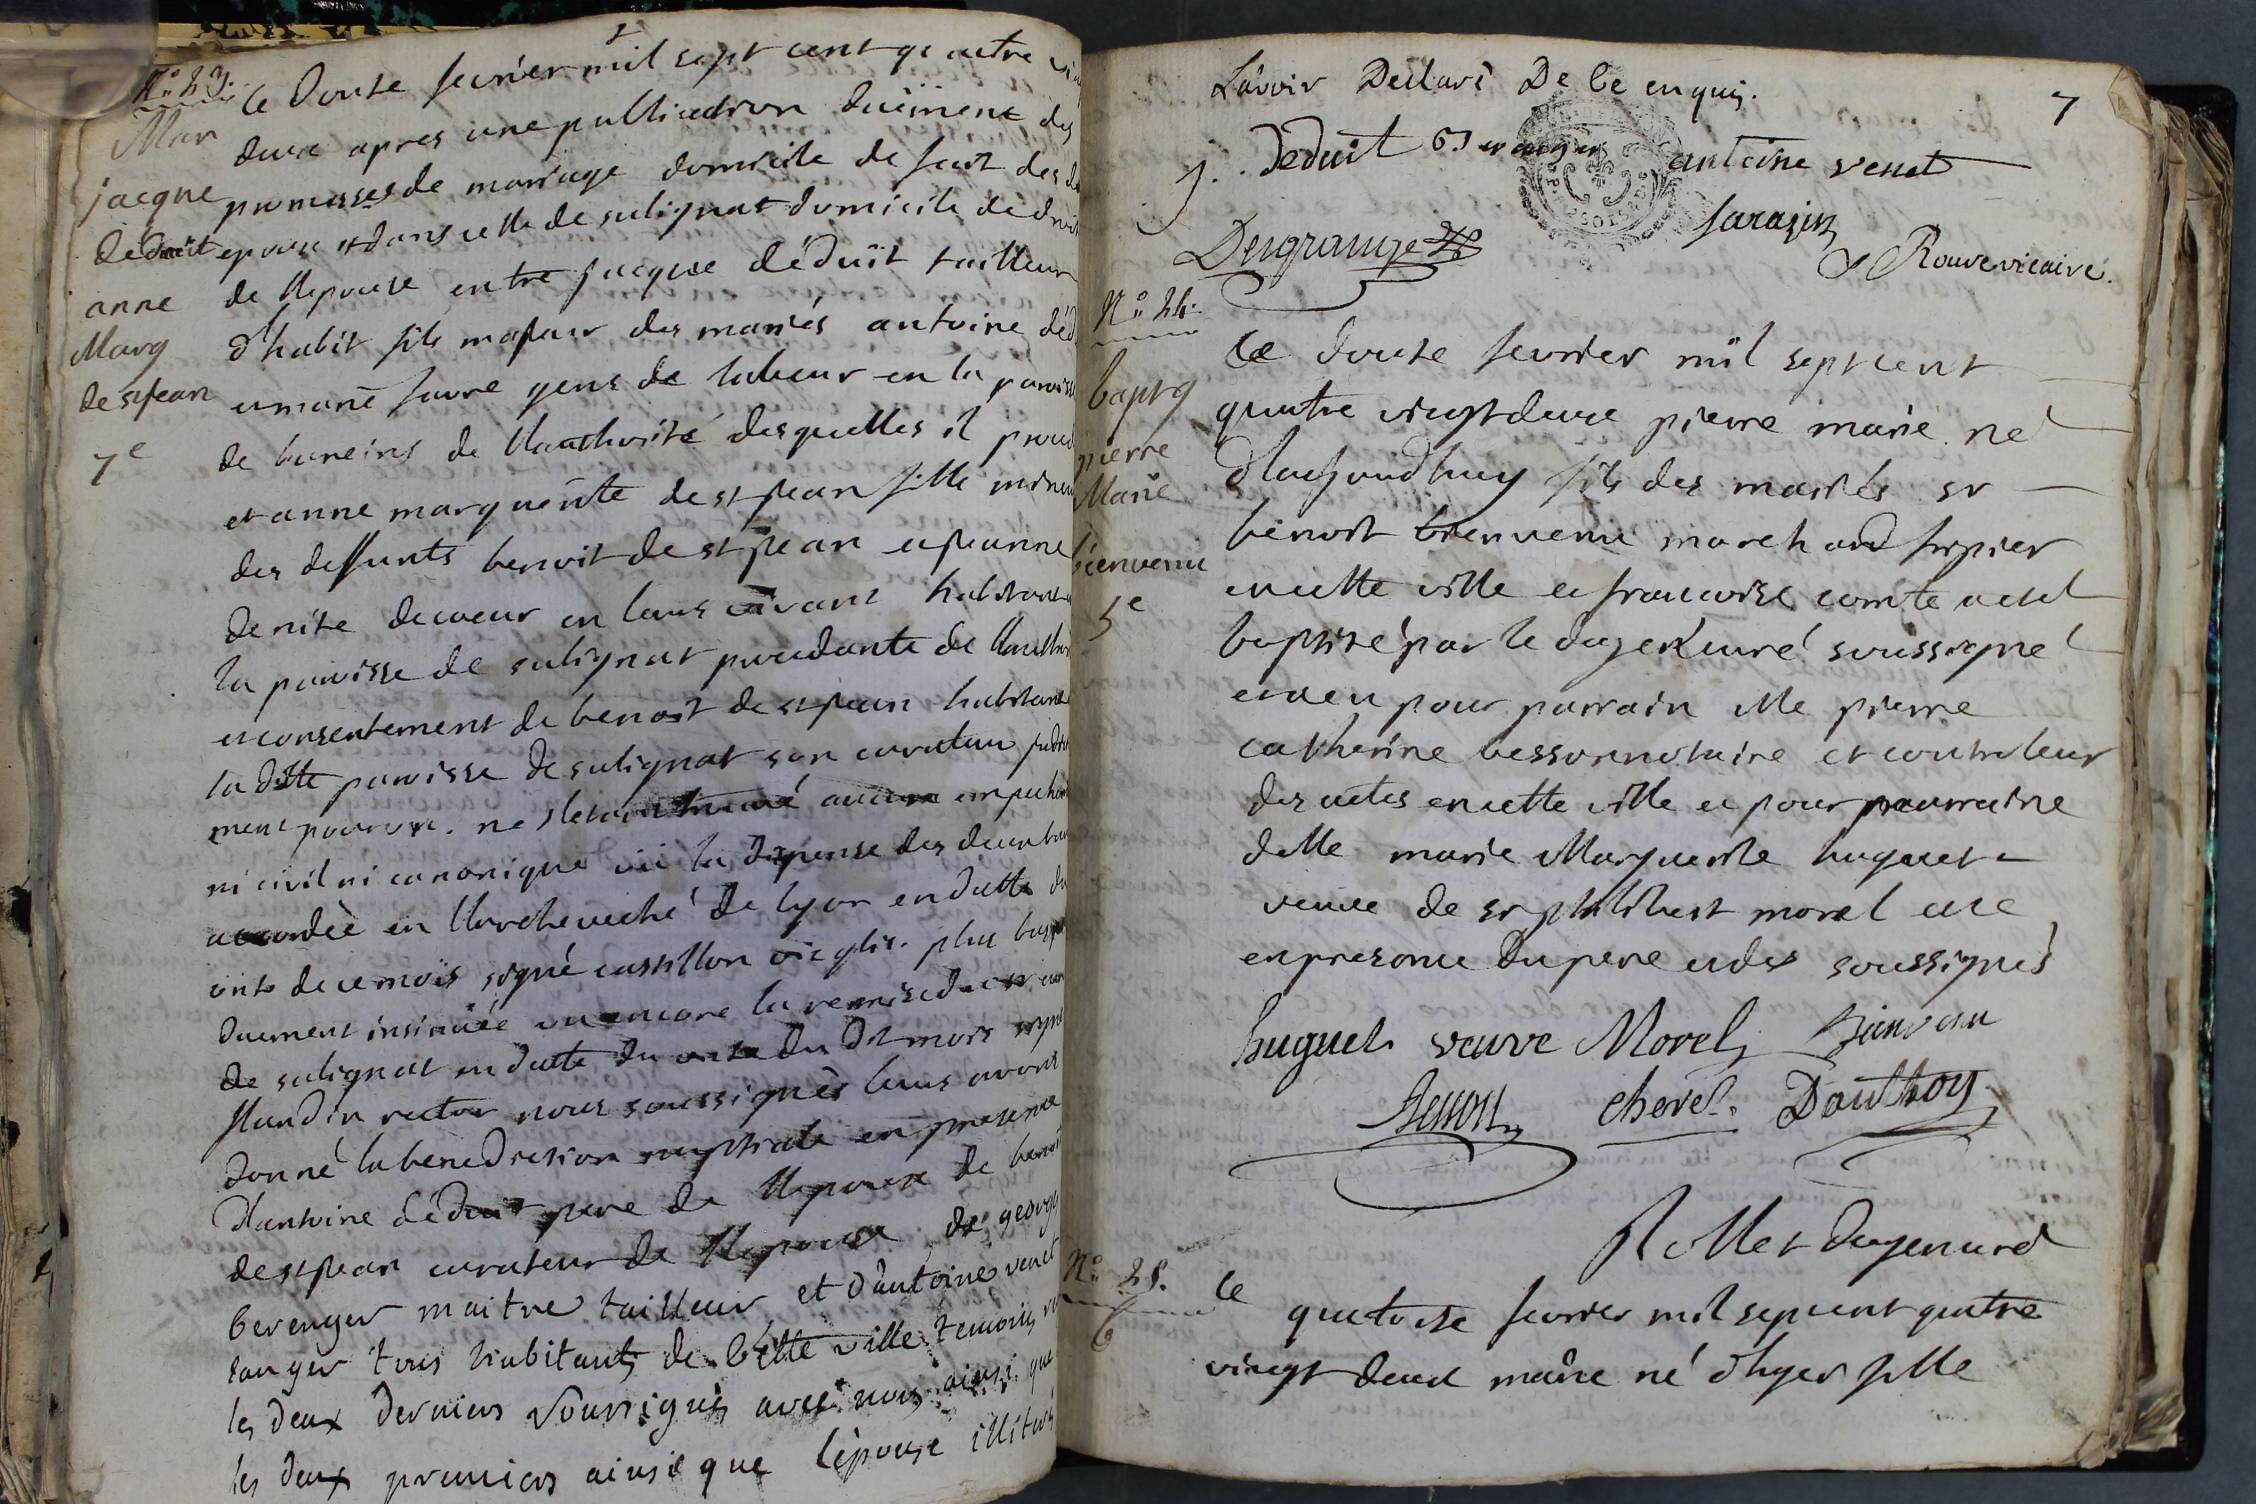 N.° 23.
Mar
jacque
dèduit
anne
Marg
de st jean
7e
le douse fevrier mil sept cent quatre vin
deux apres une publication duëment des
promesses de mariage domicile de fait des d
epoux et dans celle de sulignat domicile de droit
de l'epouse entre jacque dèduit tailleur
d'habit fils majeur des mariés antoine déd
et marie favre gens de labeur en la paroisse
de baneins de l'authorité desquelles il proced
et anne marguerite de st jean fille mineu
des deffunts benoit de st jean et jeanne
denite decoeur en leurs vivant habitants
la paroisse de sulignat procedante de l'autho
et consentement de benoit de st jean habitant
la ditte paroisse de sulignat son curateur judici
ment pourvu. ne s'etant trouvé aucun empechem
ni civil ni canonique vü la dispense des deux ban
accordèe en l'archeveché de lyon en datte du
onse de ce mois signé castillon vic glis. plus bas
duement insinuée vu encore la remise de mr cur
de sulignat en datte du onse du dit mois signé
flandin rector nous soussignès leurs avons
donné la bénédiction nuptiale en presence
d'antoine dèduit pere de l'epoux de benoit
de st jean curateur de l'epouse de george
berenger maitre tailleur et d'antoine venet
tous habitants de cette ville temoins
les deux derniers soussignès avec nous ainsi que
les deux premiers ainsi que l'épouse illiterés
7
L'avoir Declaré De ce enquis.
j. deduit G. berenger antoine venet
Desgrange sarazin
Rouve vicaire.
N.° 24.
bapt g
pierre
Marie
bienvenu
5e
Le douse fevrier mil sept cent
quatre vingt deux pierre marie né
d'laujourdhuy fils des mariés sr
benoit bienvenu marchand fripier
en cette ville et francoise comte a été
baptisé par le doyen curé soussigné
et a eu pour parrain Me pierre
catherine besson notaire et controleur
des actes en cette ville et pour marraine
delle marie Marguerite huguet
veuve de sr philibert morel ce
en presence du pere et des soussignés
huguet veuve Morel Bienvenu
Besson chevel. Dauthoy
Rollet doyen curé
N.° 25.
le quatorse fevrier mil sept cent quatre
vingt deux marie né d'hyer fille